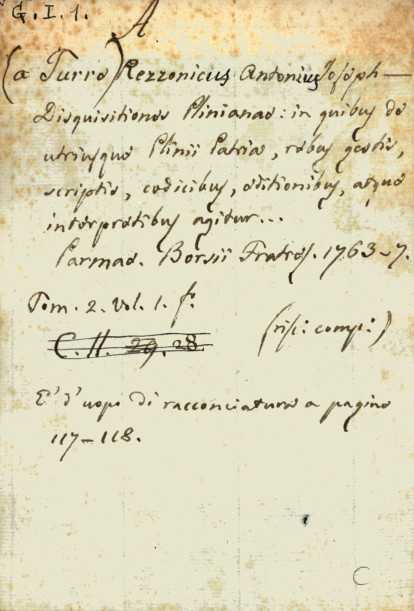 G. I. 1.
A
(a Turre) Rezzonicus Antonius Joseph —
Disquisitiones Plinianae: in quibus de
utriusque Plinii Patria, rebus gestis,
scriptis, codicibus, editionibus, atque
interpretibus agitur...
Parmae. Borsii Fratres. 1763-7.
Tom. 2. Vol. 1. fº.
C. H. 29. 28.
(risc: comp:)
E' d'uopo di racconciature a pagine
117-118.
C